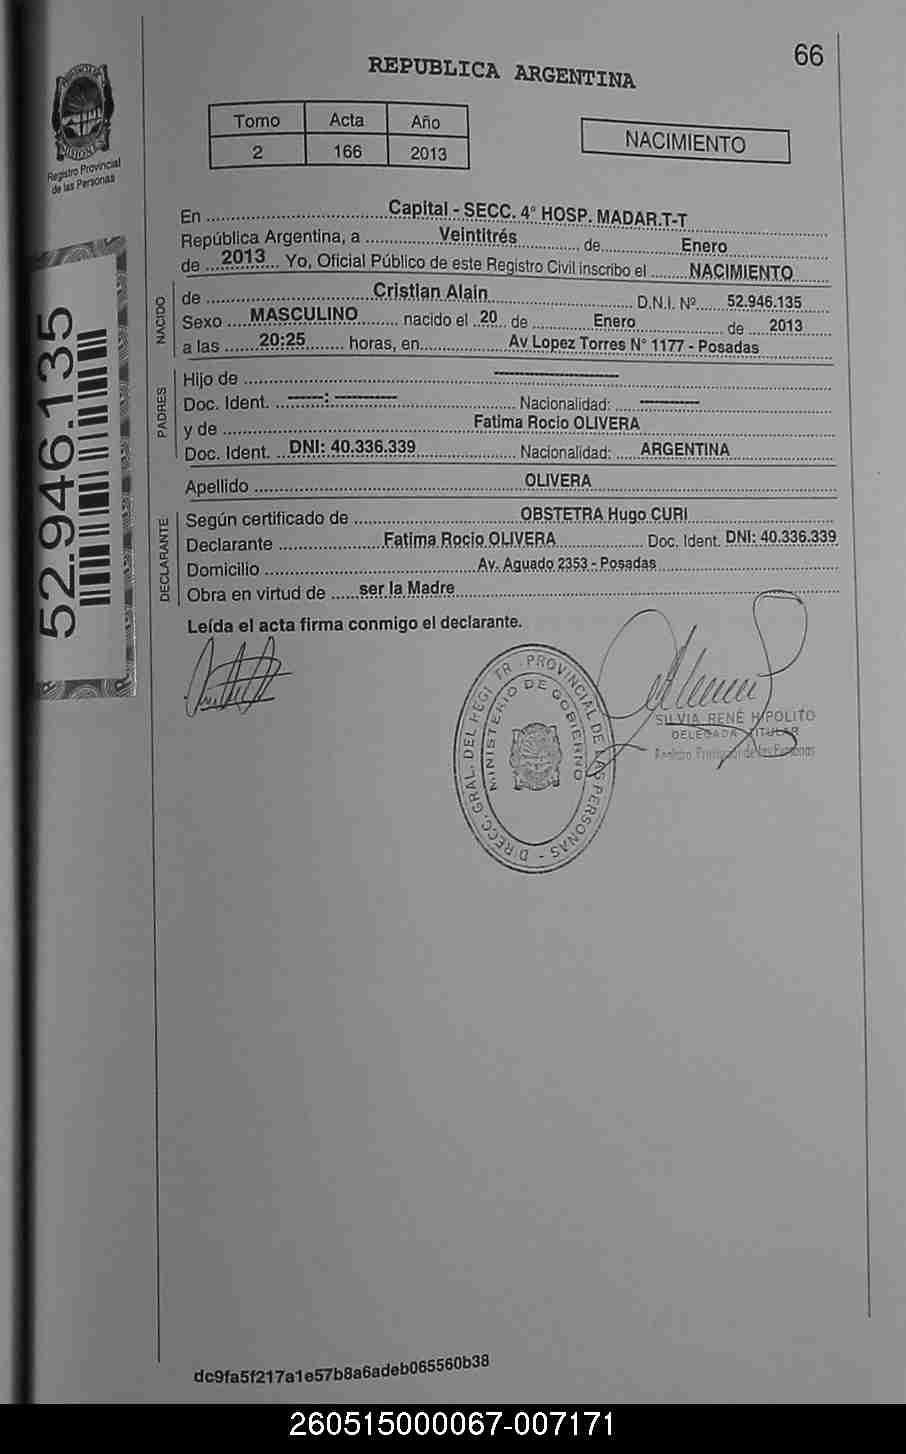 66
REPUBLICA ARGENTINA
PROVINCIA DE
MISIONES
Registro Provincial
de las Personas
Tomo Acta Año
2 166 2013
NACIMIENTO
52.946.135
En Capital - SECC. 4° HOSP. MADAR.T-T
República Argentina, a Veintitrés de Enero
de 2013 Yo, Oficial Público de este Registro Civil inscribo el NACIMIENTO
NACIDO
de Cristian Alain D.N.I. Nº 52.946.135
Sexo MASCULINO nacido el 20 de Enero de 2013
a las 20:25 horas, en Av Lopez Torres N° 1177 - Posadas
PADRES
Hijo de --------------------
Doc. Ident. ------: ---------- Nacionalidad: ----------
y de Fatima Rocio OLIVERA
Doc. Ident. DNI: 40.336.339 Nacionalidad: ARGENTINA
Apellido OLIVERA
DECLARANTE
Según certificado de OBSTETRA Hugo CURI
Declarante Fatima Rocio OLIVERA Doc. Ident. DNI: 40.336.339
Domicilio Av. Aguado 2353 - Posadas
Obra en virtud de ser la Madre
Leída el acta firma conmigo el declarante.
DIRECC. GRAL. DEL REGISTR. PROVINCIAL DE LAS PERSONAS -
MINISTERIO DE GOBIERNO
SILVIA RENÉ HIPOLITO
DELEGADA TITULAR
Registro Provincial de las Personas
dc9fa5f217a1e57b8a6adeb065560b38
260515000067-007171